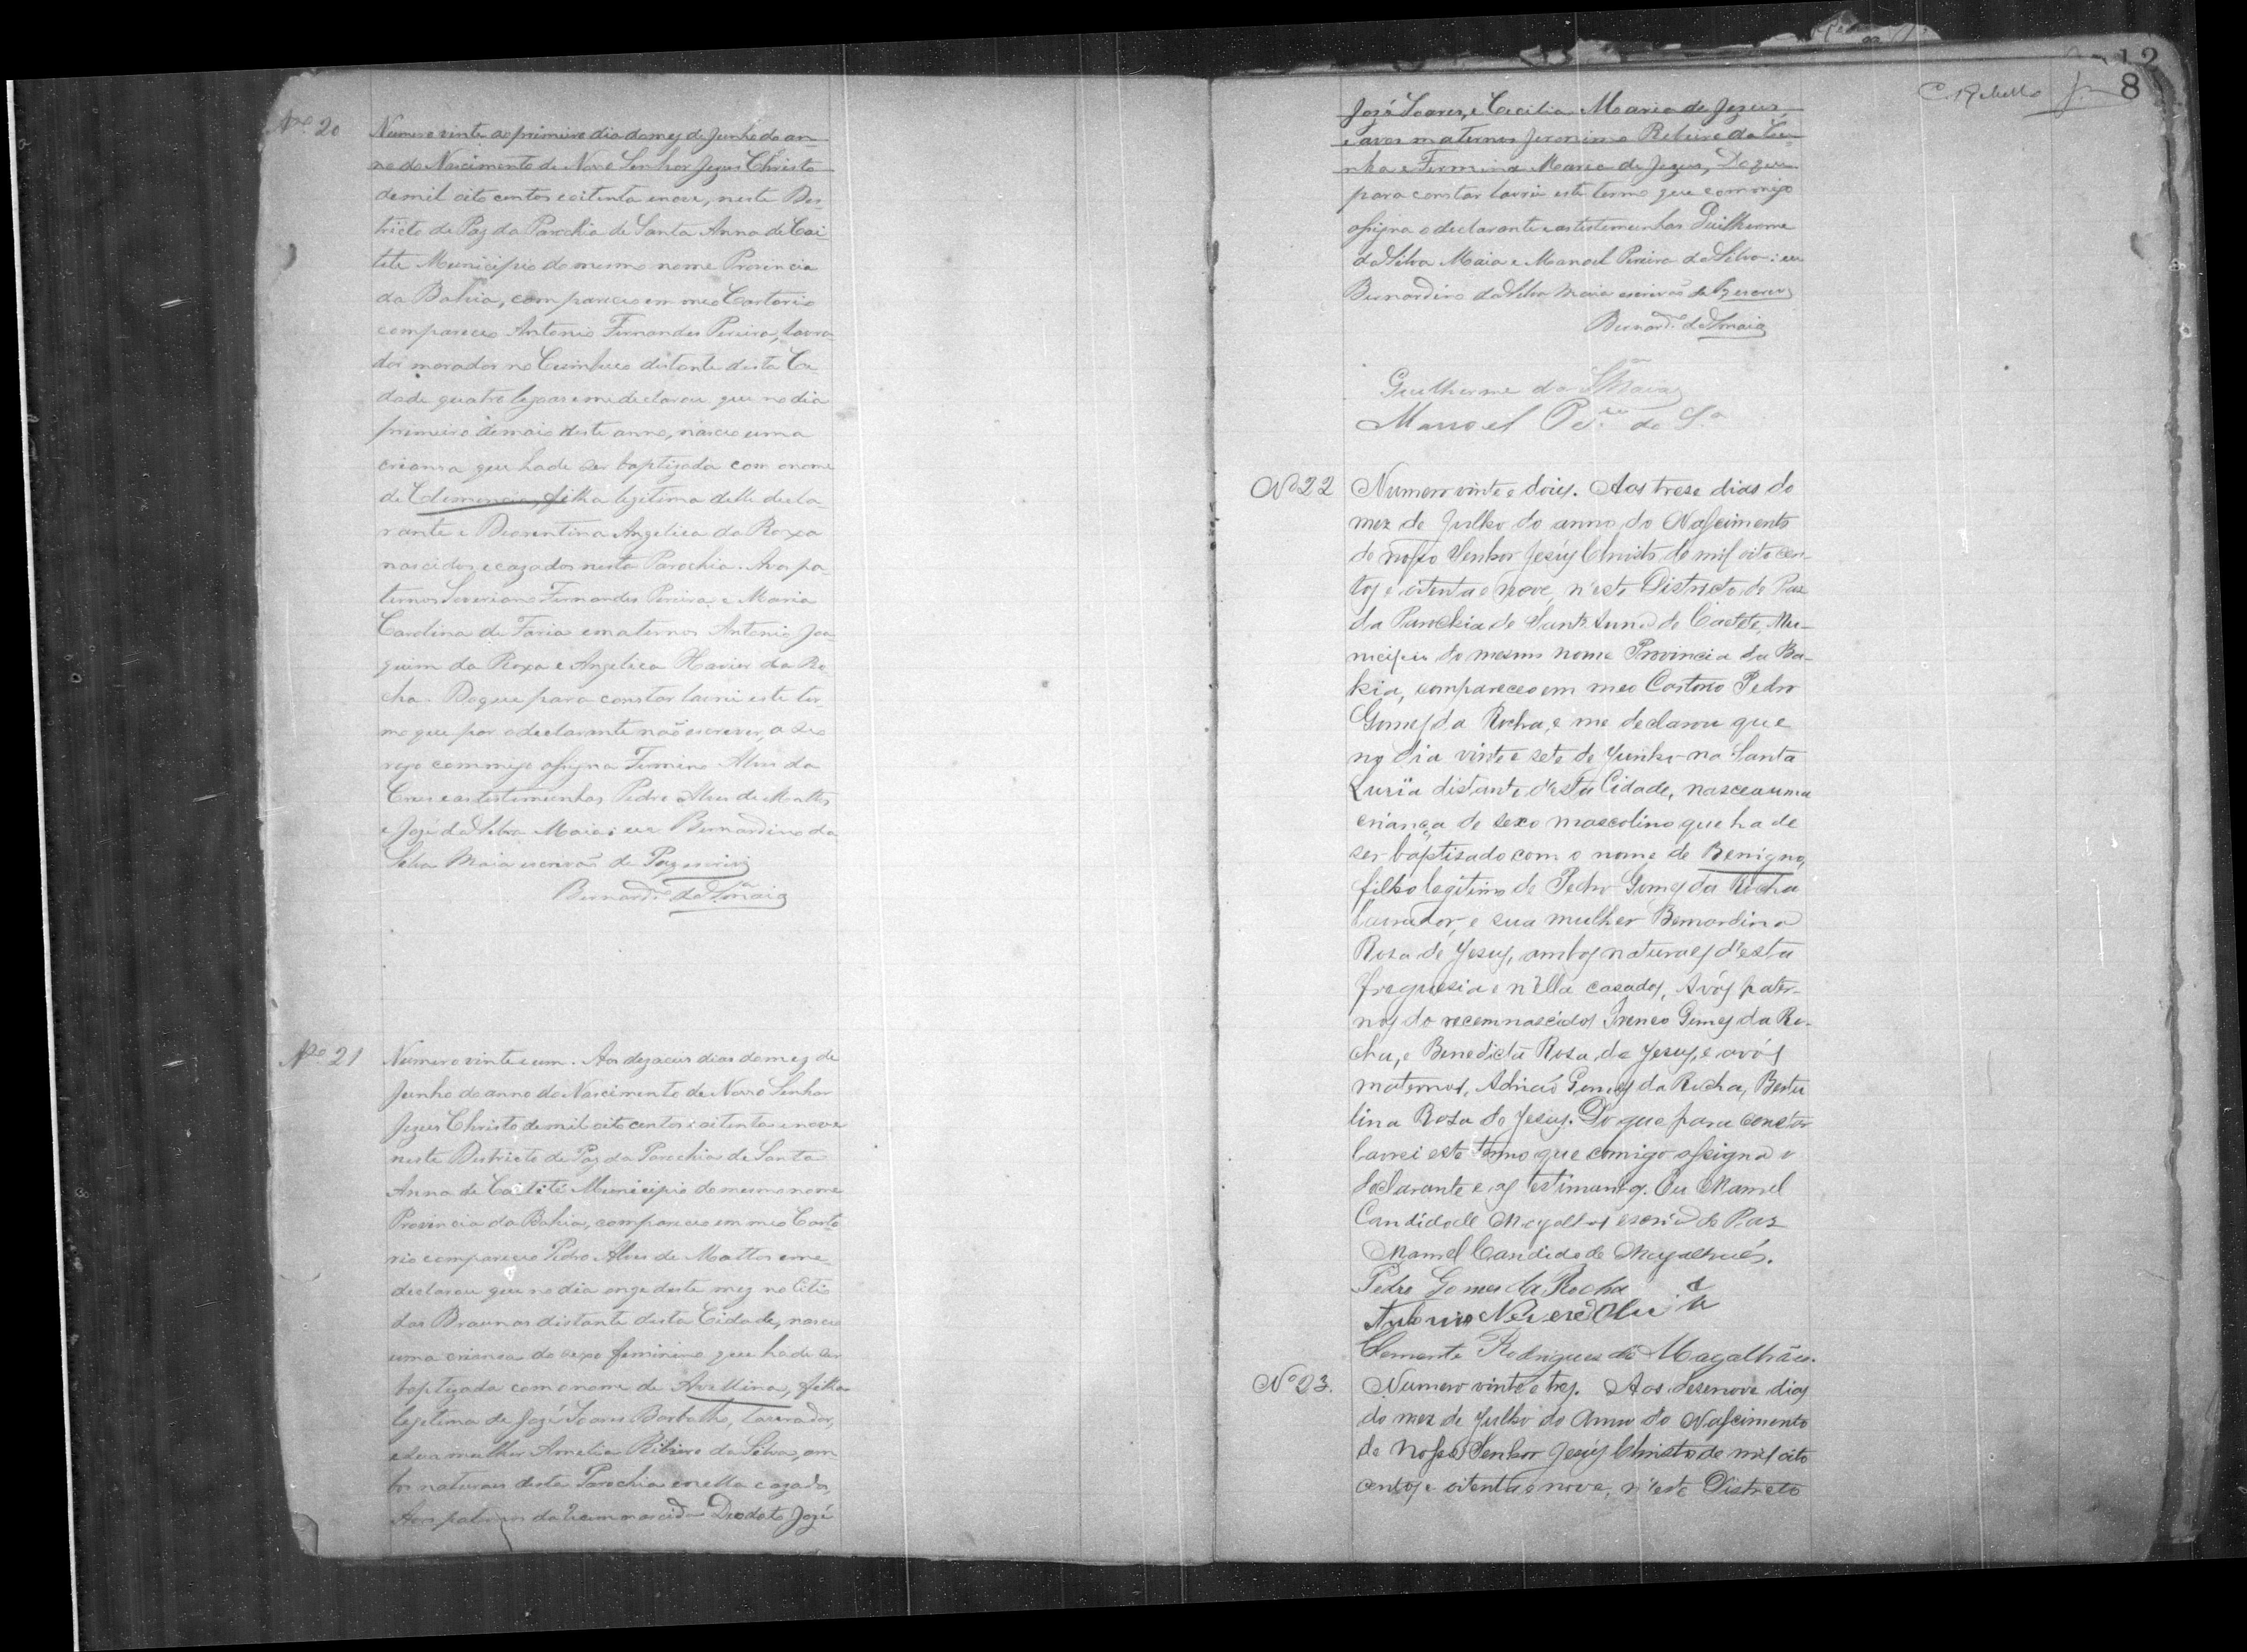 Nº 20
Numero vinte ao primeiro dia do mez de Junho do an-
no do Nascimento de Nosso Senhor Jezus Christo
de mil oito centos e oitenta e nove, neste Des-
tricto de Paz da Parochia de Santa Anna de Cai-
tete Municipio do mesmo nome Provincia
da Bahia, compareceo em meo Cartorio
compareceo Antonio Fernandes Pereira, lavra-
dor morador no distante desta Ci-
dade quatro legoas e me declarou que no dia
primeiro de maio deste anno, nasceo uma
criansa que hade ser baptizada com o nome
de Clemencia, filha legitima delle decla-
rante e Angelica da Roxa
nascidos e cazados nesta Parochia. Avos pa-
ternos Severiano Fernandes Pereira e Maria
Carolina de Faria e maternos Antonio Joa-
quim da Roxa e Angelica Xavier da Ro-
cha. Do que para constar lavrei este ter-
mo que por o declarante não escrever, a seo
rogo commigo assigna Firmino Alves da
Cruz e as testemunhas Pedro Alves de Mattos
e José da Silva Maia: eu Bernardino da
Silva Maia escrivão de Paz escrevi
Bernardº da Sª Maia
Nº 21
Numero vinte e um. Aos dezaceis dias do mez de
Junho do anno do Nascimento de Nosso Senhor
Jezus Christo de mil oito centos e oitenta e nove
neste Districto de Paz da Parochia de Santa
Anna de Caitité Municipio do mesmo nome
Provincia da Bahia, compareceo em meo Carto
rio compareceo Pedro Alves de Mattos e me
declarou que no dia onze deste mez no Citio
das Braunas distante desta Cidade, nasceo
uma criansa do sexo feminino que hade ser
baptizada com o nome de Avellina, filha
legitima de José Soares Barbalho, lavrador,
e sua mulher Amelia Ribeiro da Silva, am-
bos naturaes desta Parochia e nella cazados,
Avos paternos da recemnascida Deodato José
C. Rebello
12
8
José Soares, e Cecilia Maria de Jezus
e avos maternos Jeronimo Ribeiro da Cu-
nha e Firmina Maria de Jezus, Do que
para constar lavrei este termo que commigo
assigna o declarante e as testemunhas Guilherme
da Silva Maia e Manoel Pereira da Silva: eu
Bernardino da Silva Maia escrivão de Paz escrevi
Bernardº da Sª Maia
Guilherme da Sª Maia
Manoel Per.ª da S.ª
Nº 22
Numero vinte e dois. Aos trese dias do
mez de Julho do anno do Nascimento
de nosso Senhor Jesús Christo de mil oito cen-
tos e oitenta e nove, n'este Districto de Paz
da Parochia de Sant'Anna de Caetete, Mu-
nicipio do mesmo nome Provincia da Ba-
hia, compareceo em meo Cartorio Pedro
Gomes da Rocha, e me declarou que
no dia vinte e sete de Junho na Santa
Luzia distante d'esta Cidade, nasceo uma
criança de sexo mascolino que ha de
ser baptisado com o nome de Benigno,
filho legitimo de Pedro Gomes da Rocha
lavrador, e sua mulher Bernardina
Rosa de Jesus, ambos naturaes d'esta
freguesia e n'ella casados, Avós pater-
nos do recemnascidos Ireneo Gomes da Ro-
cha, e Benedicta Rosa de Jesus, e avós
maternos, Adrião Gomes da Rocha, Bertu
lina Rosa de Jesus. Do que para constar
lavrei este termo que comigo assigna o
declarante e as testimunhas. Eu Manoel
Candido de Magalhães escrivão de Paz
Manoel Candido de Magalhães.
Pedro Gomes da Rocha
Antonio
Clemente Rodrigues de Magalhães.
Nº 23.
Numero vinte e tres. Aos desenove dias
do mez de Julho do Anno do Nascimento
de Nosso Senhor Jesús Christo de mil oito
centos e oitenta e nove, n'este Districto